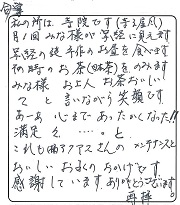 私の所は、寺院です(寺子屋風)
月1回みな様が写経に見えます
写経の後手作のお菓を食べます
その時のお茶(日本茶)をのみます
みな様 お上人お茶おいしい
て と言いながら笑顔です
あーあ 心まであったかくなった!!
満足 を ・・・・。と
これも曲アクアスさんのメンテナンスと
おいしいお水のおかげです
感謝しています。ありがとうございます。